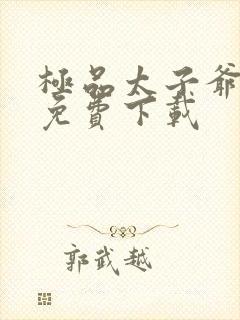 極品太子爺
免費下載
郭武越